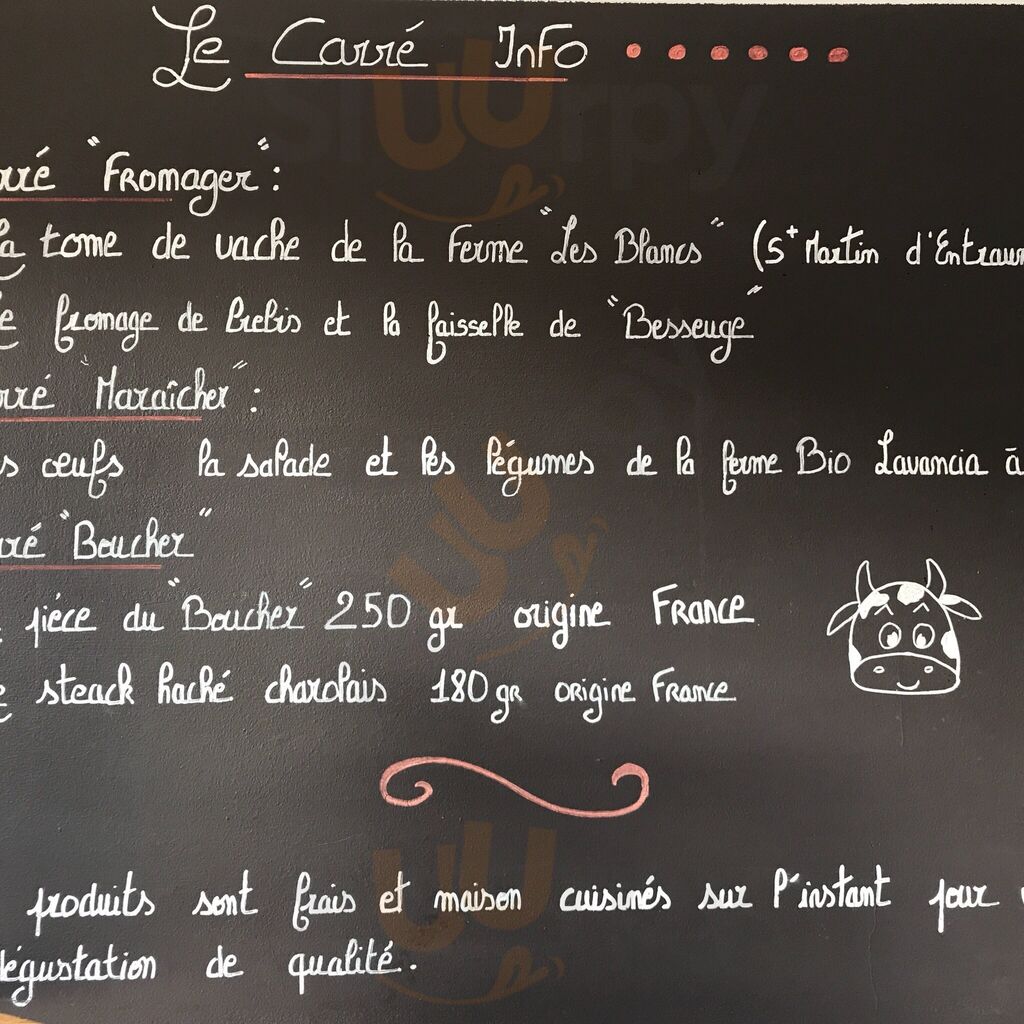 Le Carré Info ......
rré "Fromager":
la tome de vache de la Ferme "Les Blancs" (St Martin d'Entraun
e fromage de brebis et la faisselle de "Besseuge"
rré "Maraîcher":
s œufs la salade et les légumes de la ferme Bio Lavancia à
rré "Boucher"
piéce du "Boucher" 250 gr origine France
e steack haché charolais 180 gr origine France
produits sont frais et maison cuisinés sur l'instant pour
dégustation de qualité.
sluurpy